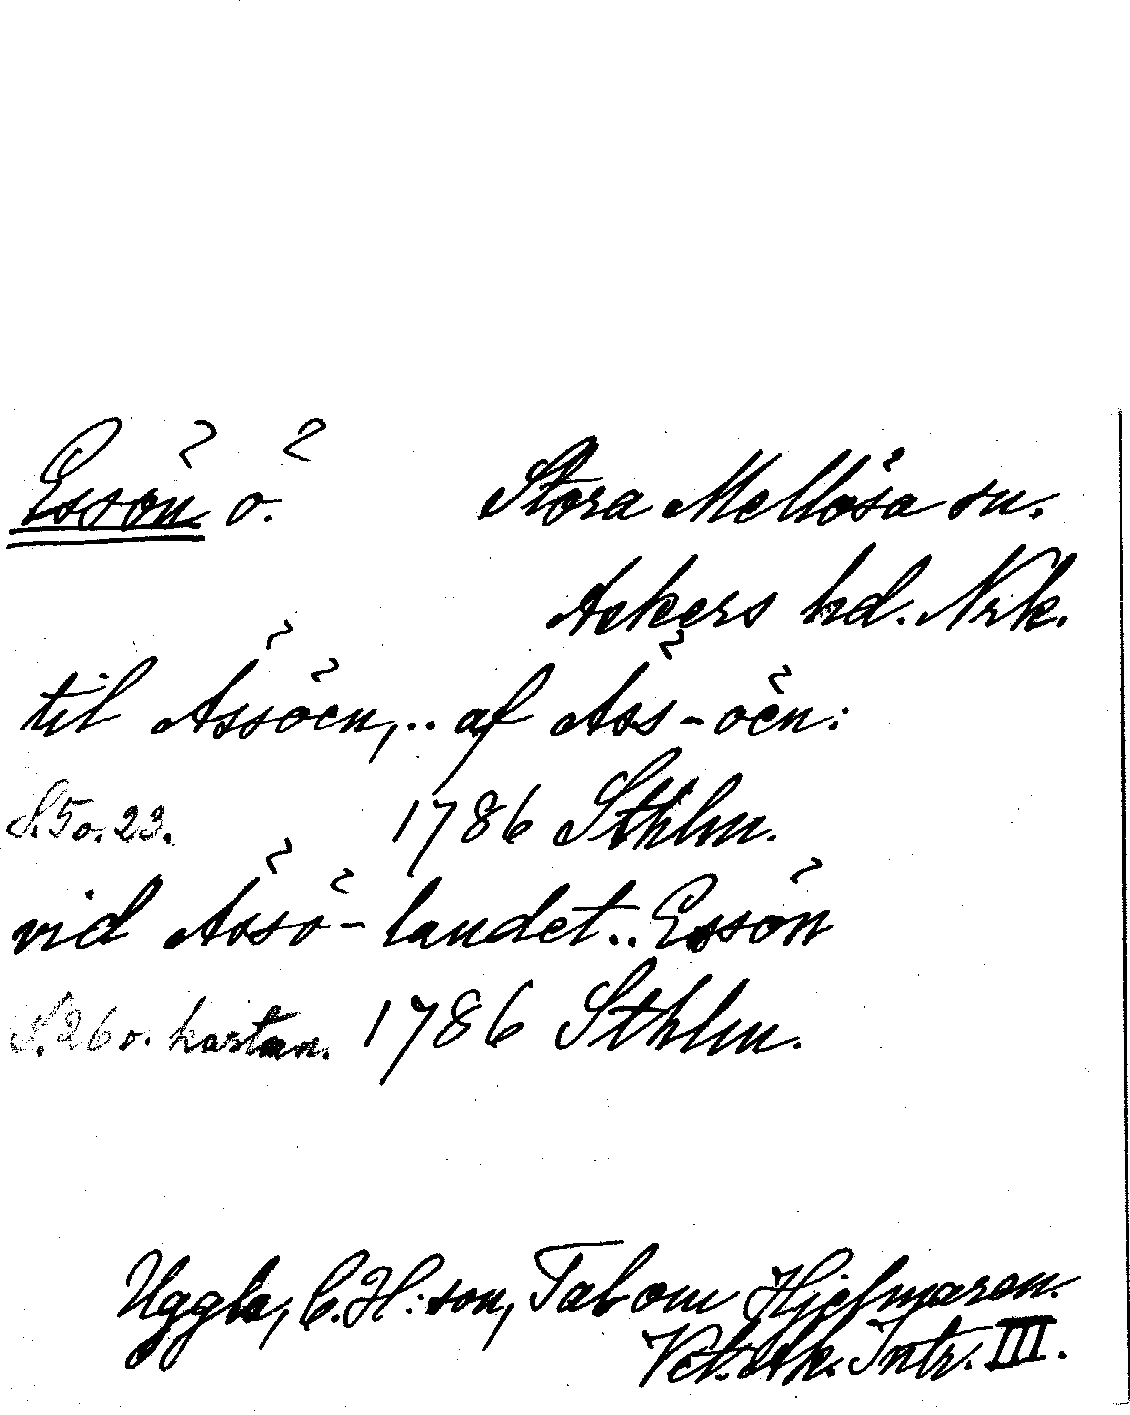 Essön ö.
Stora Mellösa sn.
Askers hd. Nrk.
til Åssöen,.. af Åss-öen:
S. 5 o. 23. 1786 Sthlm.
vid Åssö-landet.. Essön
S. 26 o. kartan. 1786 Sthlm.
Uggla, C. H:son, Tal om Hjelmaren.
Vet. Ak. Intr. III.